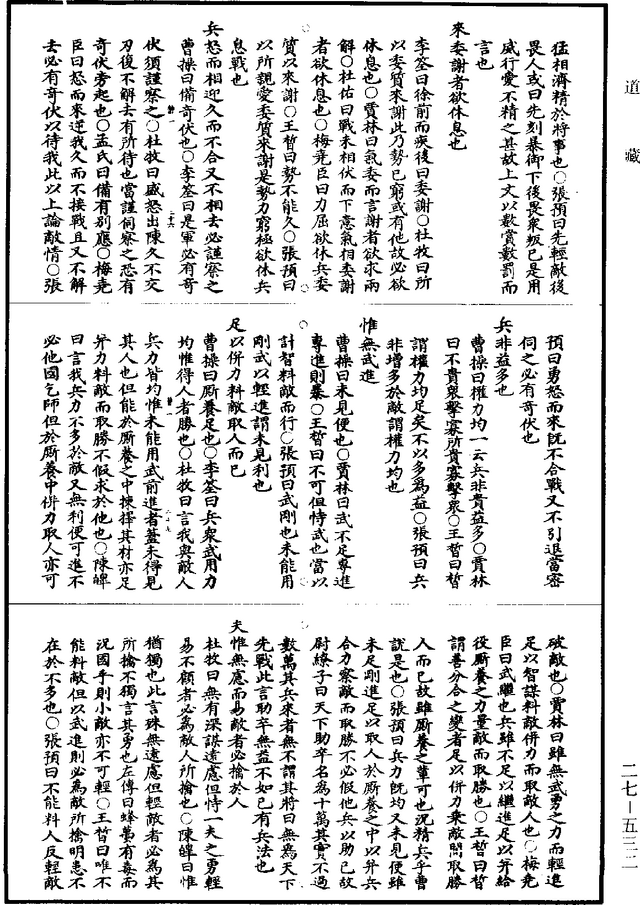 道藏
猛相濟精於將事也○張預曰先輕敵後
畏人或曰先刻暴御下後畏衆叛已是用
威行愛不精之甚故上文以數賞數罰而
言也
來委謝者欲休息也
李筌曰徐前而疾後曰委謝○杜牧曰所
以委質來謝此乃勢已窮或有他故必欲
休息也○賈林曰氣委而言謝者欲求兩
解○杜佑曰戰未相伏而下意氣相委謝
者欲休息也○梅堯臣曰力屈欲休兵委
質以來謝○王晳曰勢不能久○張預曰
以所親愛委質來謝是勢力窮極欲休兵
息戰也
兵怒而相迎久而不合又不相去必謹察之
曹操曰備奇伏也○李筌曰是軍必有奇
伏須謹察之○杜牧曰盛怒出陳久不交
刃復不解去有所待也當謹伺察之恐有
奇伏旁起也○孟氏曰備有別應○梅堯
臣曰怒而來逆我久而不接戰且又不解
去必有奇伏以待我此以上論敵情○張
預曰勇怒而來旣不合戰又不引退當密
伺之必有奇伏也
兵非益多也
曹操曰權力均一云兵非貴益多○賈林
曰不貴衆擊寡所貴寡擊衆○王晳曰晳
謂權力均足矣不以多爲益○張預曰兵
非增多於敵謂權力均也
惟無武進
曹操曰未見便也○賈林曰武不足專進
專進則暴○王晳曰不可但恃武也當以
計智料敵而行○張預曰武剛也未能用
剛武以輕進謂未見利也
足以併力料敵取人而已
曹操曰廝養足也○李筌曰兵衆武用力
均惟得人者勝也○杜牧曰言我與敵人
兵力皆均惟未能用武前進者蓋未得見
其人也但能於廝養之中揀擇其材亦足
并力料敵而取勝不假求於他也○陳皥
曰言我兵力不多於敵又無利便可進不
必他國乞師但於廝養中併力取人亦可
破敵也○賈林曰雖無武勇之力而輕進
足以智謀料敵併力而取敵人也○梅堯
臣曰武繼也兵雖不足以繼進足以并給
役廝養之力量敵而取勝也○王晳曰晳
謂善分合之變者足以併力乘敵間取勝
人而已故雖廝養之輩可也況精兵乎曹
說是也○張預曰兵力旣均又未見便雖
未足剛進足以取人於廝養之中以并兵
合力察敵而取勝不必假他兵以助已故
尉繚子曰天下助卒名爲十萬其實不過
數萬其兵來者無不謂其將曰無爲天下
先戰此言助卒無益不如已有兵法也
夫惟無慮而易敵者必擒於人
杜牧曰無有深謀遠慮但恃一夫之勇輕
易不顧者必爲敵人所擒也○陳皥曰惟
猶獨也此言殊無遠慮但輕敵者必爲其
所擒不獨言其勇也左傳曰蜂蠆有毒而
況國乎則小敵亦不可輕○王晳曰唯不
能料敵但以武進則必爲敵所擒明患不
在於不多也○張預曰不能料人反輕敵
二七—五三二